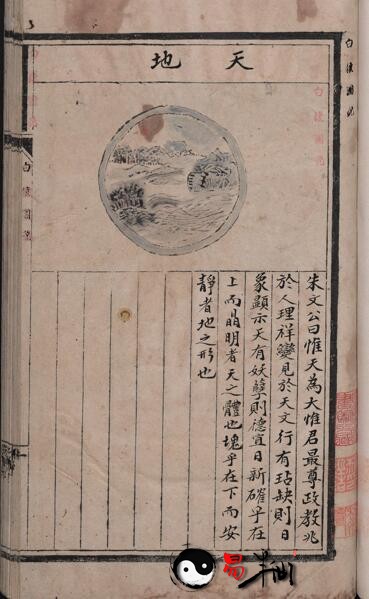 天地
朱文公曰惟天為大惟君最尊政教兆
於人理祥變見於天文行有玷缺則日
象顯示天有妖孽則德宜日新確乎在
上而晶明者天之體也塊乎在下而安
靜者地之形也
白猿圖
白猿圖
白猿圖
易半仙